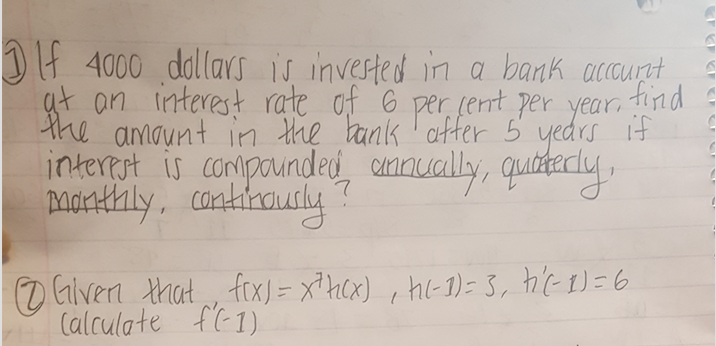 ① If 4000 dollars is invested in a bank account
at an interest rate of 6 per cent per year, find
the amount in the bank after 5 years if
interest is compounded annually, quaterly,
monthly, continously?
② Given that f(x) = x⁷h(x), h(-1) = 3, h'(-1) = 6
Calculate f'(-1)